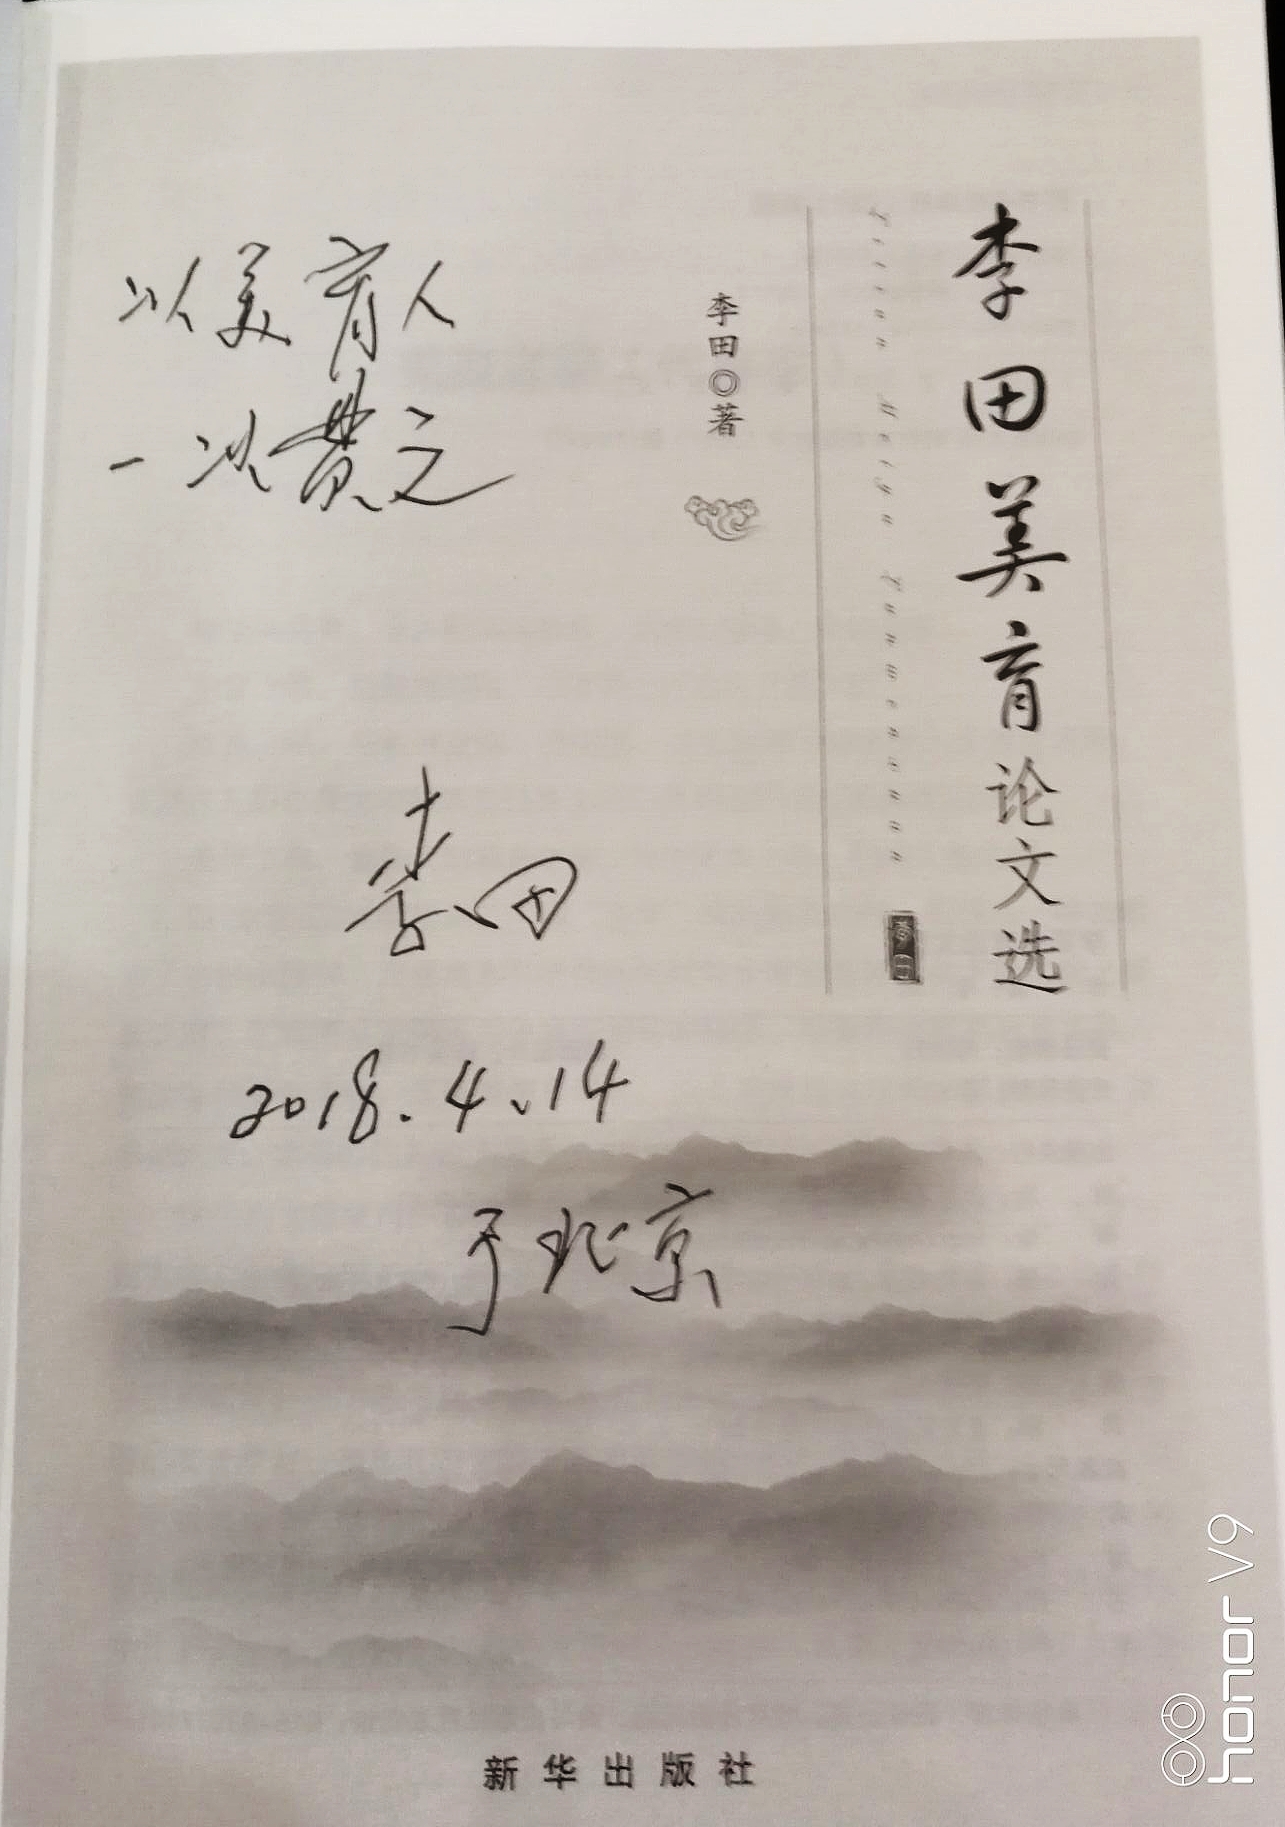 李田美育论文选
李田◎著
以美育人
一以贯之
李田
2018.4.14
于北京
新华出版社
honor V9